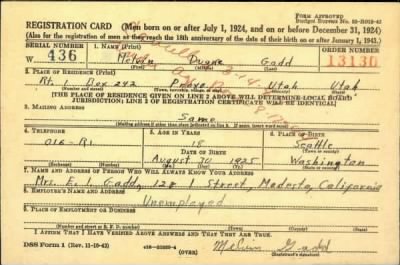 FORM APPROVED
REGISTRATION CARD—(Men born on or after July 1, 1924, and on or before December 31, 1924)
(Also for the registration of men as they reach the 18th anniversary of the date of their birth on or after January 1, 1943.)
SERIAL NUMBER
1. NAME (Print)
ORDER NUMBER
W 436
Melvin Duane Gadd
13130
(First) (Middle) (Last)
2. PLACE OF RESIDENCE (Print)
Rt. 1 Box 292 Utah Utah
(Number and street) (County) (State)
[THE PLACE OF RESIDENCE GIVEN ON LINE 2 ABOVE WILL DETERMINE LOCAL BOARD JURISDICTION; LINE 2 OF REGISTRATION CERTIFICATE WILL BE IDENTICAL]
3. MAILING ADDRESS
Same
(Mailing address if other than place indicated on line 2. If same, insert word same)
4. TELEPHONE
5. AGE IN YEARS
6. PLACE OF BIRTH
016-R1
18
Seattle
DATE OF BIRTH
(Town or county)
August 1925
Washington
(Mo.) (Day) (Yr.)
(State or country)
7. NAME AND ADDRESS OF PERSON WHO WILL ALWAYS KNOW YOUR ADDRESS
Mrs. E. Gadd, 128 I Street, Modesto, California
8. EMPLOYER'S NAME AND ADDRESS
Unemployed
9. PLACE OF EMPLOYMENT OR BUSINESS
(Number and street or R. F. D. number) (Town) (County) (State)
I AFFIRM THAT I HAVE VERIFIED ABOVE ANSWERS AND THAT THEY ARE TRUE.
DSS Form 1 (Rev. 11-16-43)
Melvin Gadd